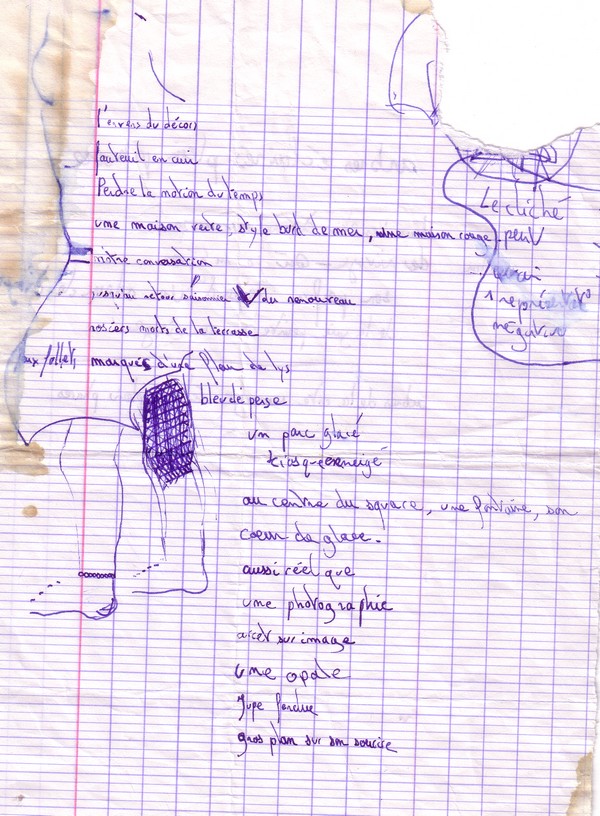 l'envers du décors
fauteuil en cuir
Perdre la notion du temps
une maison verte, style bord de mer, une maison rouge
nôtre conversation
jusqu'au retour saisonnier du renouveau
rosiers morts de la terrasse
aux follets marqués d'une fleur de lys
bleu de perse
un parc glacé
kiosque enneigé
au centre du square, une fontaine, son
coeur de glace.
aussi réel que
une photographie
arrêt sur image
une opale
Jupe fendue
gros plan sur son sourire
Le cliché
peut
négative